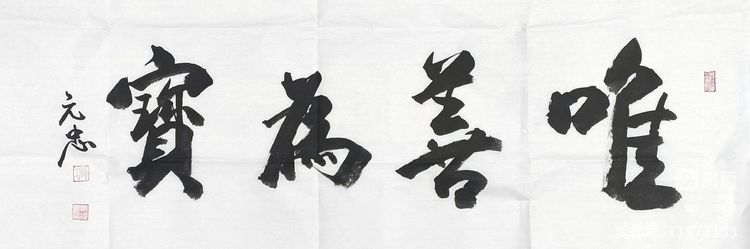 唯善為寶
元忠